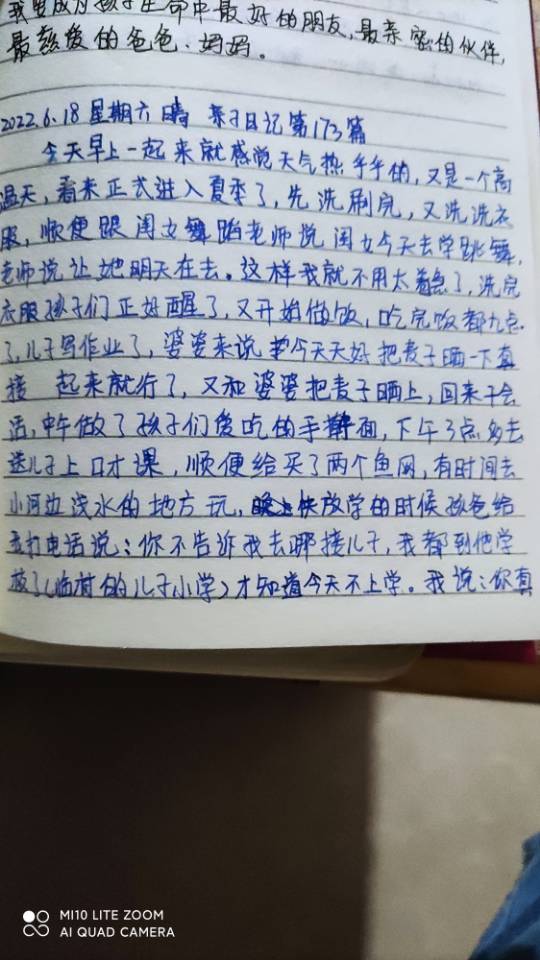 我要成为孩子生命中最好的朋友,最亲密的伙伴,
最慈爱的爸爸、妈妈。
2022.6.18 星期六 晴 亲子日记第173篇
今天早上一起来就感觉天气热乎乎的,又是一个高
温天,看来正式进入夏季了,先洗刷完,又洗洗衣
服,顺便跟闺女舞蹈老师说闺女今天去学跳舞,
老师说让她明天在去。这样我就不用太着急了,洗完
衣服孩子们正好醒了,又开始做饭,吃完饭都九点
了,儿子写作业了,婆婆来说今天天好把麦子晒一下直
接 起来就行了,又和婆婆把麦子晒上,回来干会
活,中午做了孩子们爱吃的手擀面,下午3点多去
送儿子上口才课,顺便给买了两个鱼网,有时间去
小河边浅水的地方玩,快放学的时候孩爸给
我打电话说:你不告诉我去哪接儿子,我都到他学
校了(临村的儿子小学)才知道今天不上学。我说:你真
MI10 LITE ZOOM
AI QUAD CAMERA